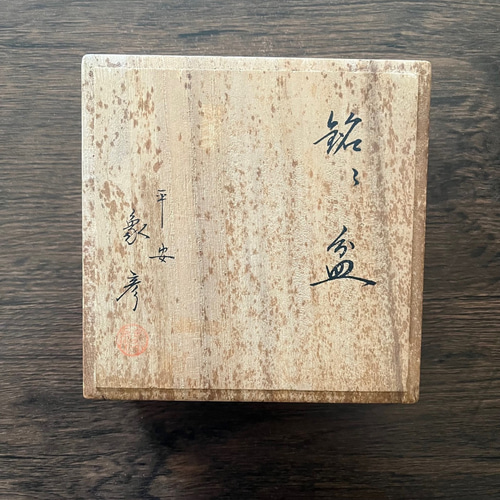 銘々盆
平安
象彦